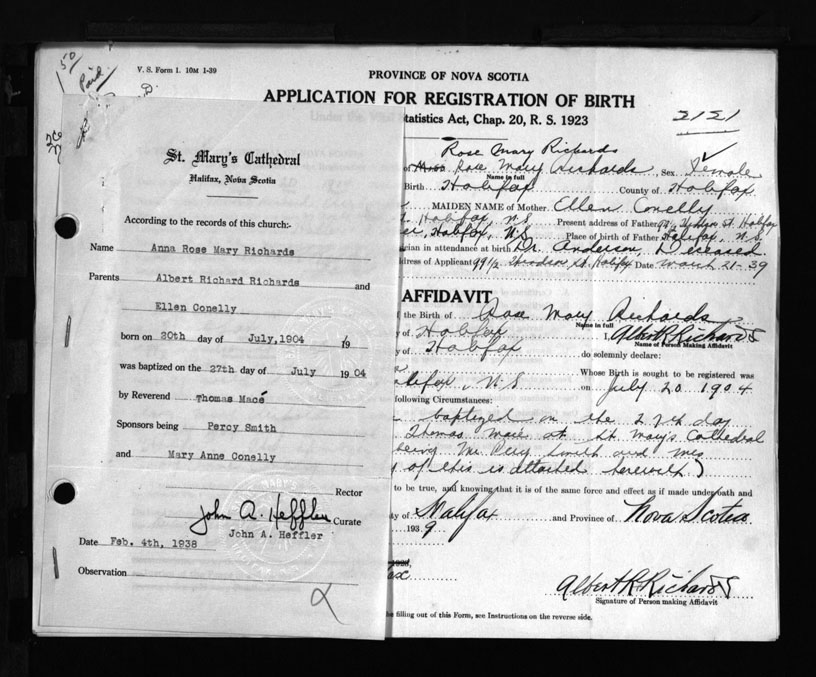 50
Paid
V. S. Form 1. 10M 1-39
PROVINCE OF NOVA SCOTIA
APPLICATION FOR REGISTRATION OF BIRTH
Under the
tatistics Act, Chap. 20, R. S. 1923
2121
St. Mary's Cathedral
Halifax, Nova Scotia
According to the records of this church:-
Name Anna Rose Mary Richards
Parents Albert Richard Richards and
Ellen Conelly
born on 20th day of July, 1904 19
was baptized on the 27th day of July 1904
by Reverend Thomas Macé
Sponsors being Percy Smith
and Mary Anne Conelly
Rector
John A. Heffler Curate
John A. Heffler
Date Feb. 4th, 1938
Observation
Rose Mary Richards
of Rose Mary Richards, Sex Female
Name in full
Birth Halifax County of Halifax
MAIDEN NAME of Mother Ellen Conelly
Halifax, NS Present address of Father 99 1/2 St Halifax
Halifax, N.S. Place of birth of Father Halifax, N.S.
ician in attendance at birth Dr. Anderson, Deceased
ddress of Applicant 99 1/2 St. Halifax Date March 21-39
AFFIDAVIT
f the Birth of Rose Mary Richards
Name in full
y of Halifax Albert R Richards
Name of Person Making Affidavit
y of Halifax do solemnly declare:
Whose Birth is sought to be registered was
alifax, N.S on July 20 1904
following Circumstances:
baptized on the 27th day
Thomas at St Mary's Cathedral
being Mr Percy Smith and Mrs
y of this is attached herewith)
to be true, and knowing that it is of the same force and effect as if made under oath and
ty of Halifax and Province of Nova Scotia
1939
ax
Albert R Richards
Signature of Person making Affidavit
re filling out of this Form, see Instructions on the reverse side.